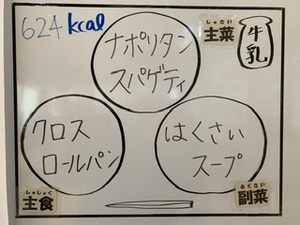 624 kcal
しゅさい
主菜
牛乳
ナポリタン
スパゲティ
クロス
ロールパン
はくさい
スープ
しゅしょく
主食
ふくさい
副菜